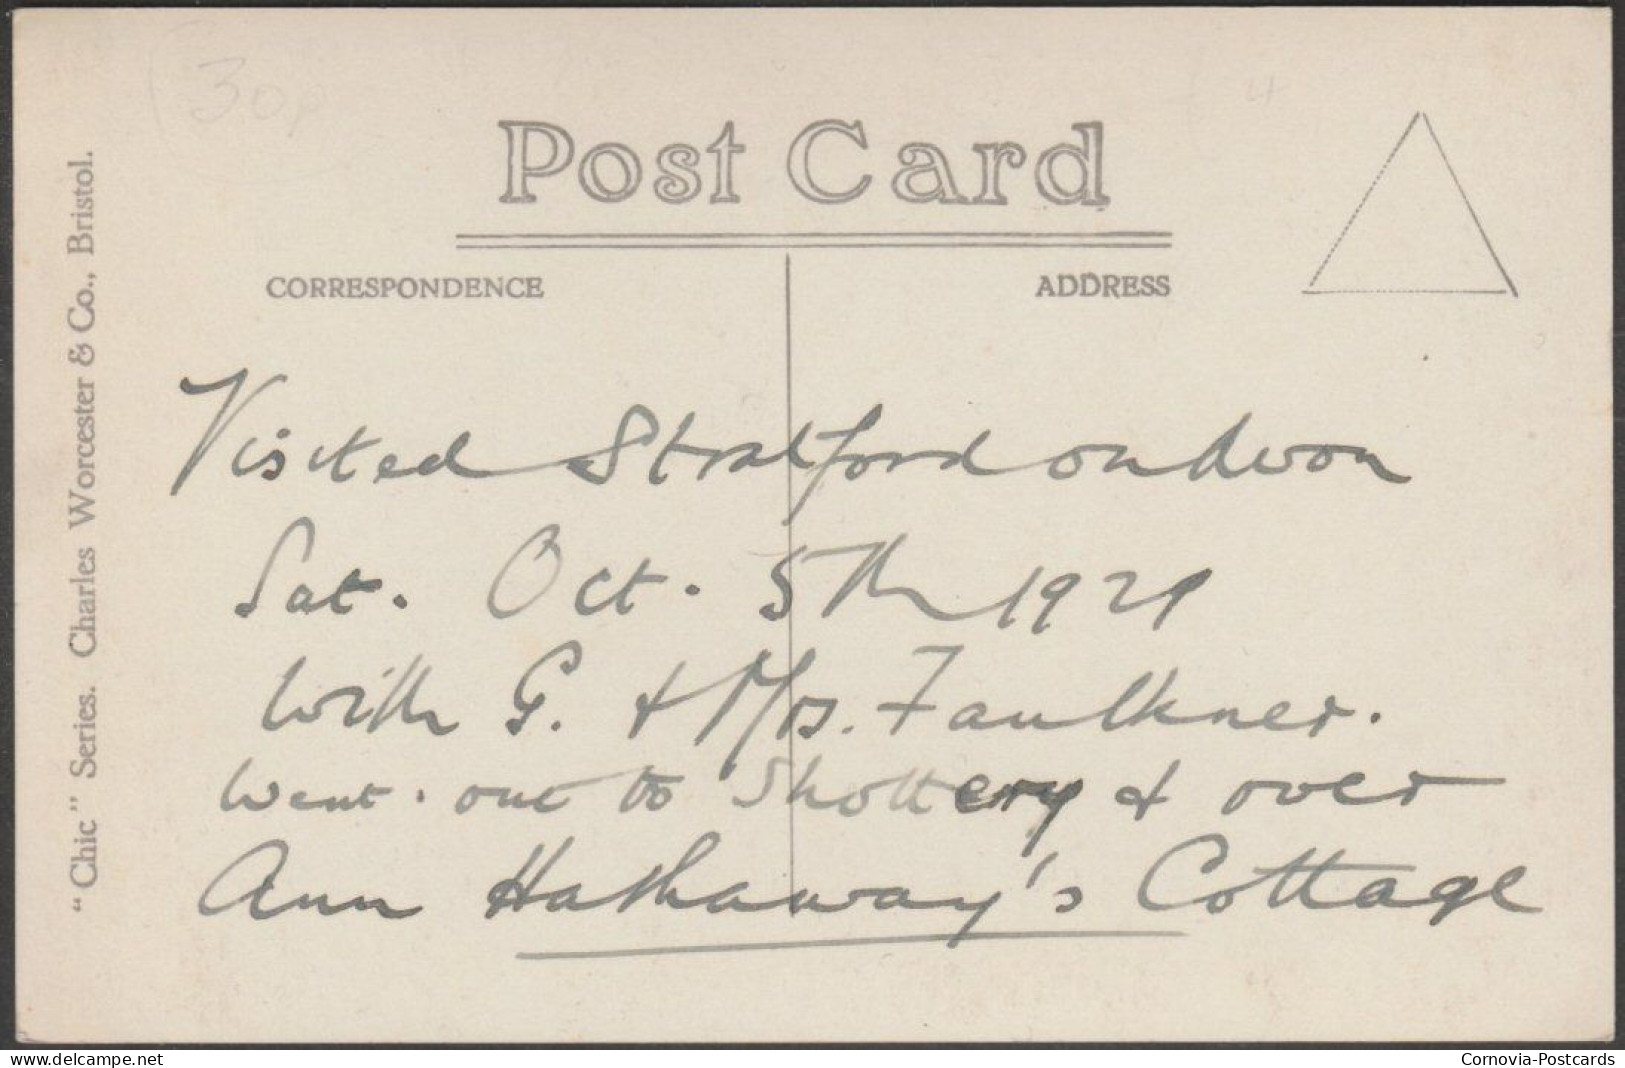 30p
Post Card
CORRESPONDENCE
ADDRESS
"Chic" Series. Charles Worcester & Co., Bristol.
Visited Stratford on Avon
Sat. Oct. 5th 1929
With G. & Mrs. Faulkner.
Went out to Shottery & over
Ann Hathaway's Cottage
delcampe.net
Cornovia-Postcards